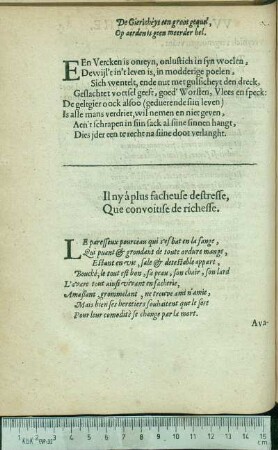 De Gierichëyt een groot gequel,
Op aerden is geen meerder hel.
EEn Vercken is onreyn, onlustich in syn woelen,
Dewijl't in't leven is, in modderige poelen,
Sich ventelt, ende nut met gulsicheyt den dreck,
Geslachtet voetsel geeft, goed' Worsten, Vlees en speck:
De gelegier oock alsoo (geduerende sijn leven)
Is alle mans verdriet, wil nemen en niet geven,
Aen't schrapen in sijn sack al sijne sinnen hangt,
Dies jder een te recht na sijne doot verlanght.
Il ny à plus facheuse destresse,
Que convoitise de richesse.
LE paresseux pourceau qui s'esbat en la fange,
Qui puant & grondant de toute ordure mange,
Estant en vie, sale & detestable appart,
Bouché, le tout est bon, sa peau, son chair, son lard
L'avare tout ainsi vivant en facherie,
Amassant, grommelant, ne trouve ami n'amie,
Mais bien ses heretiers souhaitent que le sort
Pour leur comodité se change par la mort.
Ava-
1 2 3 4 5 6 7 8 9 10 11 12 13 14 15
cm